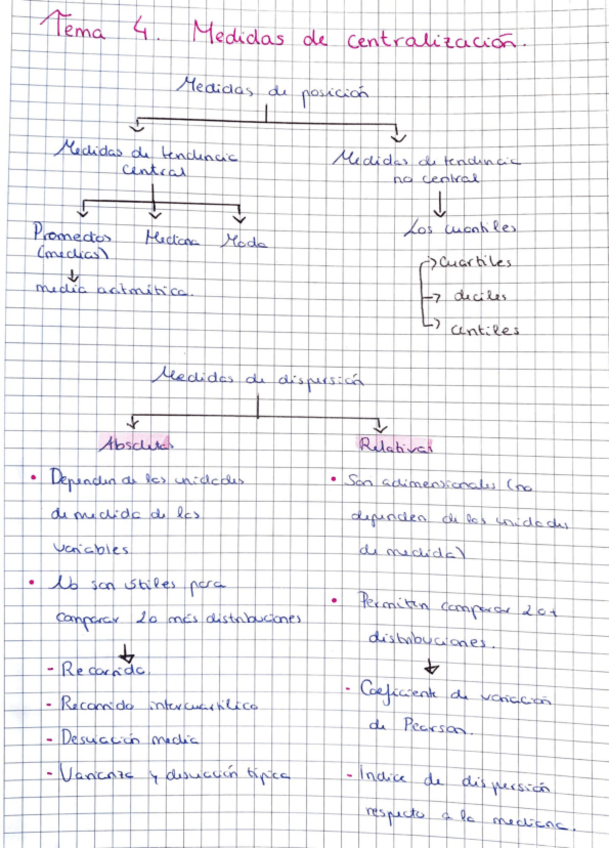 Tema 4. Medidas de centralización.
Medidas de posición
Medidas de tendencia
central
Medidas de tendencia
no central
Promedios
(medias)
Mediana
Moda
media aritmética.
Los cuantiles
cuartiles
deciles
centiles
Medidas de dispersión
Absolutas
• Dependen de las unidades
de medida de las
variables
• No son útiles para
comparar 2 o más distribuciones
- Recorrido.
- Recorrido intercuartílico
- Desviación media
- Varianza y desviación típica
Relativas
• Son adimensionales (no
dependen de las unidades
de medida)
• Permiten comparar 2 o +
distribuciones.
- Coeficiente de variación
de Pearson.
- Indice de dispersión
respecto a la mediana.